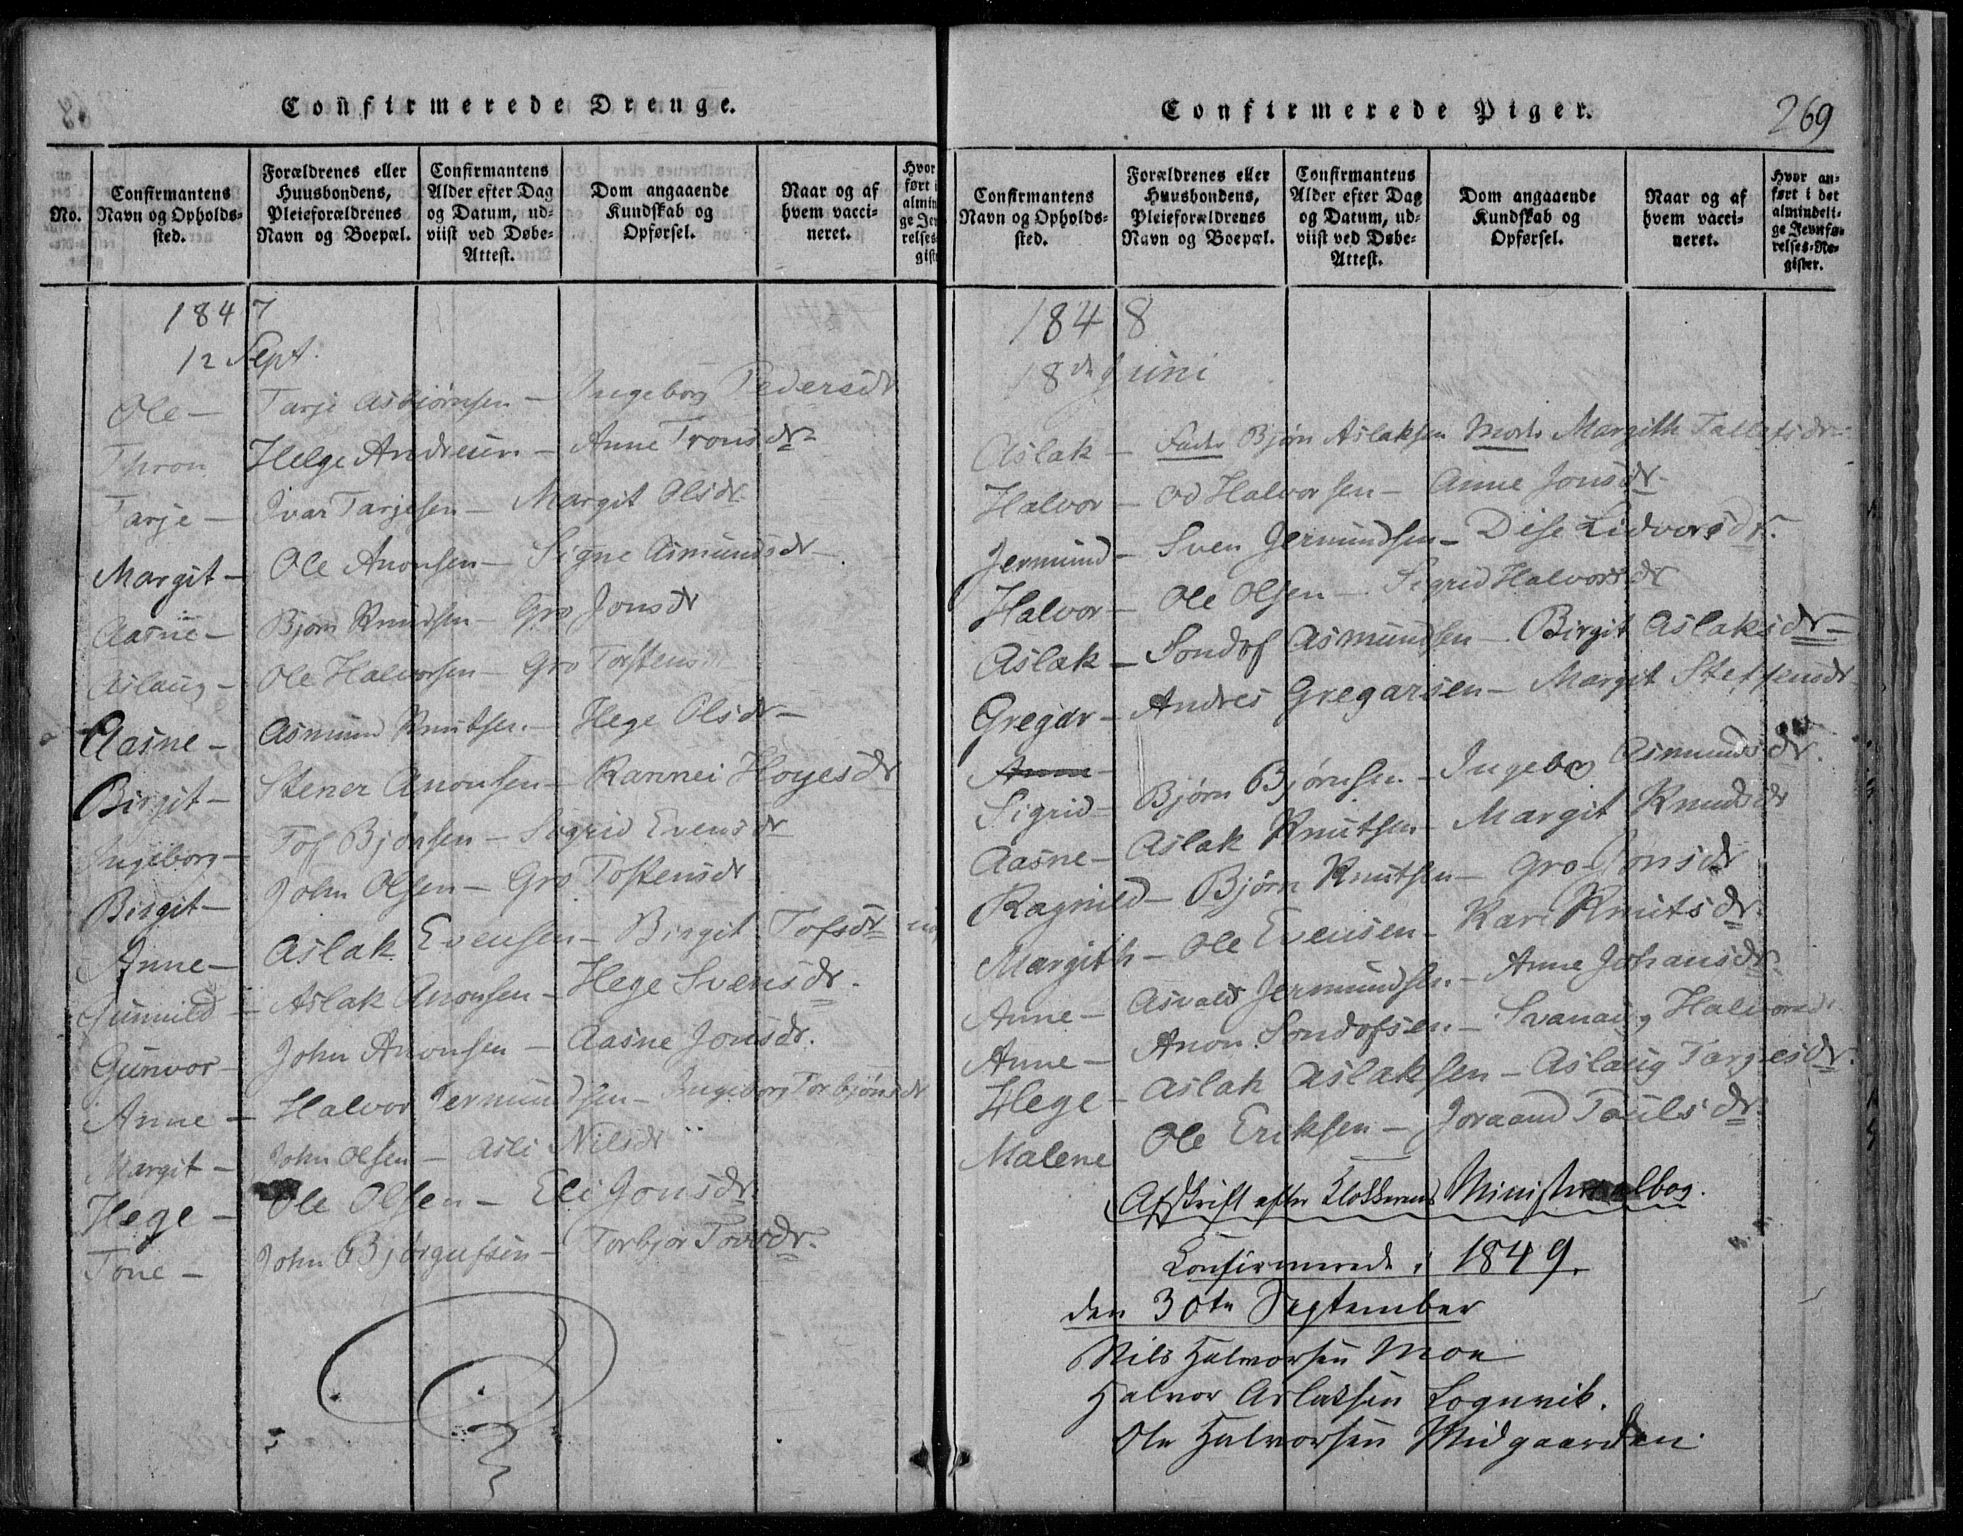 Confirmerede Drenge.
No.
Confirmantens Navn og Opholds-sted.
Forældrenes eller Huusbondens, Pleieforældrenes Navn og Boepæl.
Confirmantens Alder efter Dag og Datum, ud-viist ved Døbe-Attest.
Dom angaaende Kundskab og Opførsel.
Naar og af hvem vacci-neret.
1847
12 Sept.
Ole – Tarje Asbjørnsen – Ingeborg Pedersdr
Thron Helge Andresen – Anne Tronsdr
Tarje – Ivar Tarjesen – Margit Olsdr.
Margit – Ole Anonsen – Signe Asmundsdr –
Aasne – Bjørn Knudsen – Gro Jonsdr
Aslaug – Ole Halvorsen – Gro Torstensdr
Aasne – Asmund Knutsen – Hege Olsdr –
Birgit – Stener Anonsen – Rannei Hoyesdr
Ingeborg – Tof Bjønsen – Sigrid Evensdr
Birgit – John Olsen – Gro Tostensdr
Anne – Aslak Evensen – Birgit Tofsdr
Gunnild – Aslak Anonsen – Hege Svensdr.
Gunvor – John Anonsen – Aasne Jonsdr.
Anne – Halvor Jermundsen – Ingeborg Torbjønsdr
Margit – John Olsen – Asli Nilsdr
Hege – Ole Olsen – Eli Jonsdr.
Tone – John Bjørgufsen – Torbjør Tovsdr.
Confirmerede Piger.
269
Confirmantens Navn og Opholds-sted.
Forældrenes eller Huusbondens, Pleieforældrenes Navn og Boepæl.
Confirmantens Alder efter Dag og Datum, ud-viist ved Døbe-Attest.
Dom angaaende Kundskab og Opførsel.
Naar og af hvem vacci-neret.
Hvor an-ført i det almindeli-ge Jevnfø-relses-Re-gister.
1848
18de Juni
Aslak – Fader Bjørn Aslaksen Moder Margith Tallefsdr
Halvor – Od Halvorsen – Anne Jonsdr –
Jermund – Sven Jermundsen – Dise Lidvorsdr.
Halvor – Ole Olsen – Sigrid Halvorsdr
Aslak – Sondof Asmundsen – Birgit Aslaksdr –
Gregar – Andres Gregarsen – Margit Steffensdr
Anne –
Sigrid – Bjørn Bjørnsen – Ingebor Asmundsdr.
Aasne – Aslak Knutsen – Margit Knudsdr
Ragnild – Bjørn Knutsen – Gro Jonsdr
Margith – Ole Evensen – Kari Knutsdr.
Anne – Asvald Jermundsen – Anne Johansdr
Anne – Anon Sondofsen – Svanaug Halvorsdr
Hege – Aslak Aslaksen – Aslaug Targesdr.
Malene Ole Eriksen – Joraand Paulsdr.
Afskrift efter Klokkerens Ministerialbog.
Confirmerede i 1849.
den 30te September
Nils Halvorsen Moen
Halvor Aslaksen Lognvik.
Ole Halvorsen Midgaarden.